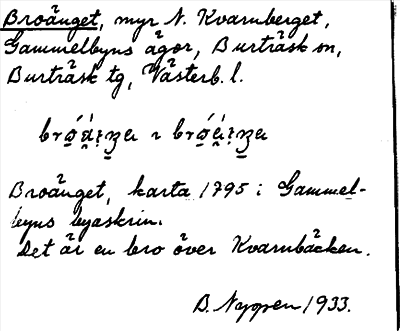 Broänget, myr N. Kvarnberget,
Gammelbyns ägor, Burträsk sn,
Burträsk tg, Västerb. l.
Broänget, karta 1795 i Gammel-
byns byaskrin.
Det är en bro över Kvarnbäcken.
B. Nyppen 1933.